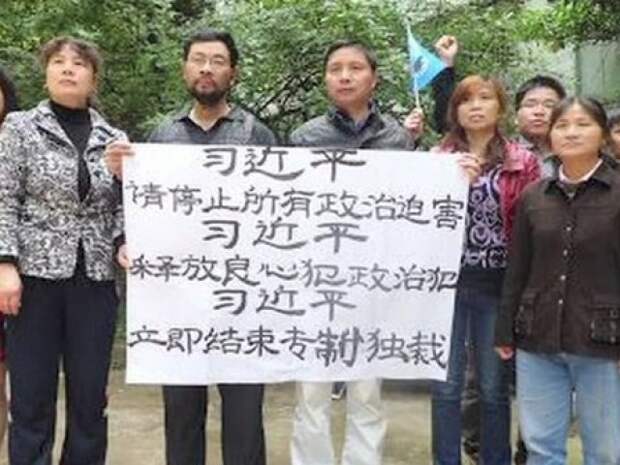 习近平
请停止所有政治迫害
习近平
释放良心犯政治犯
习近平
立即结束专制独裁